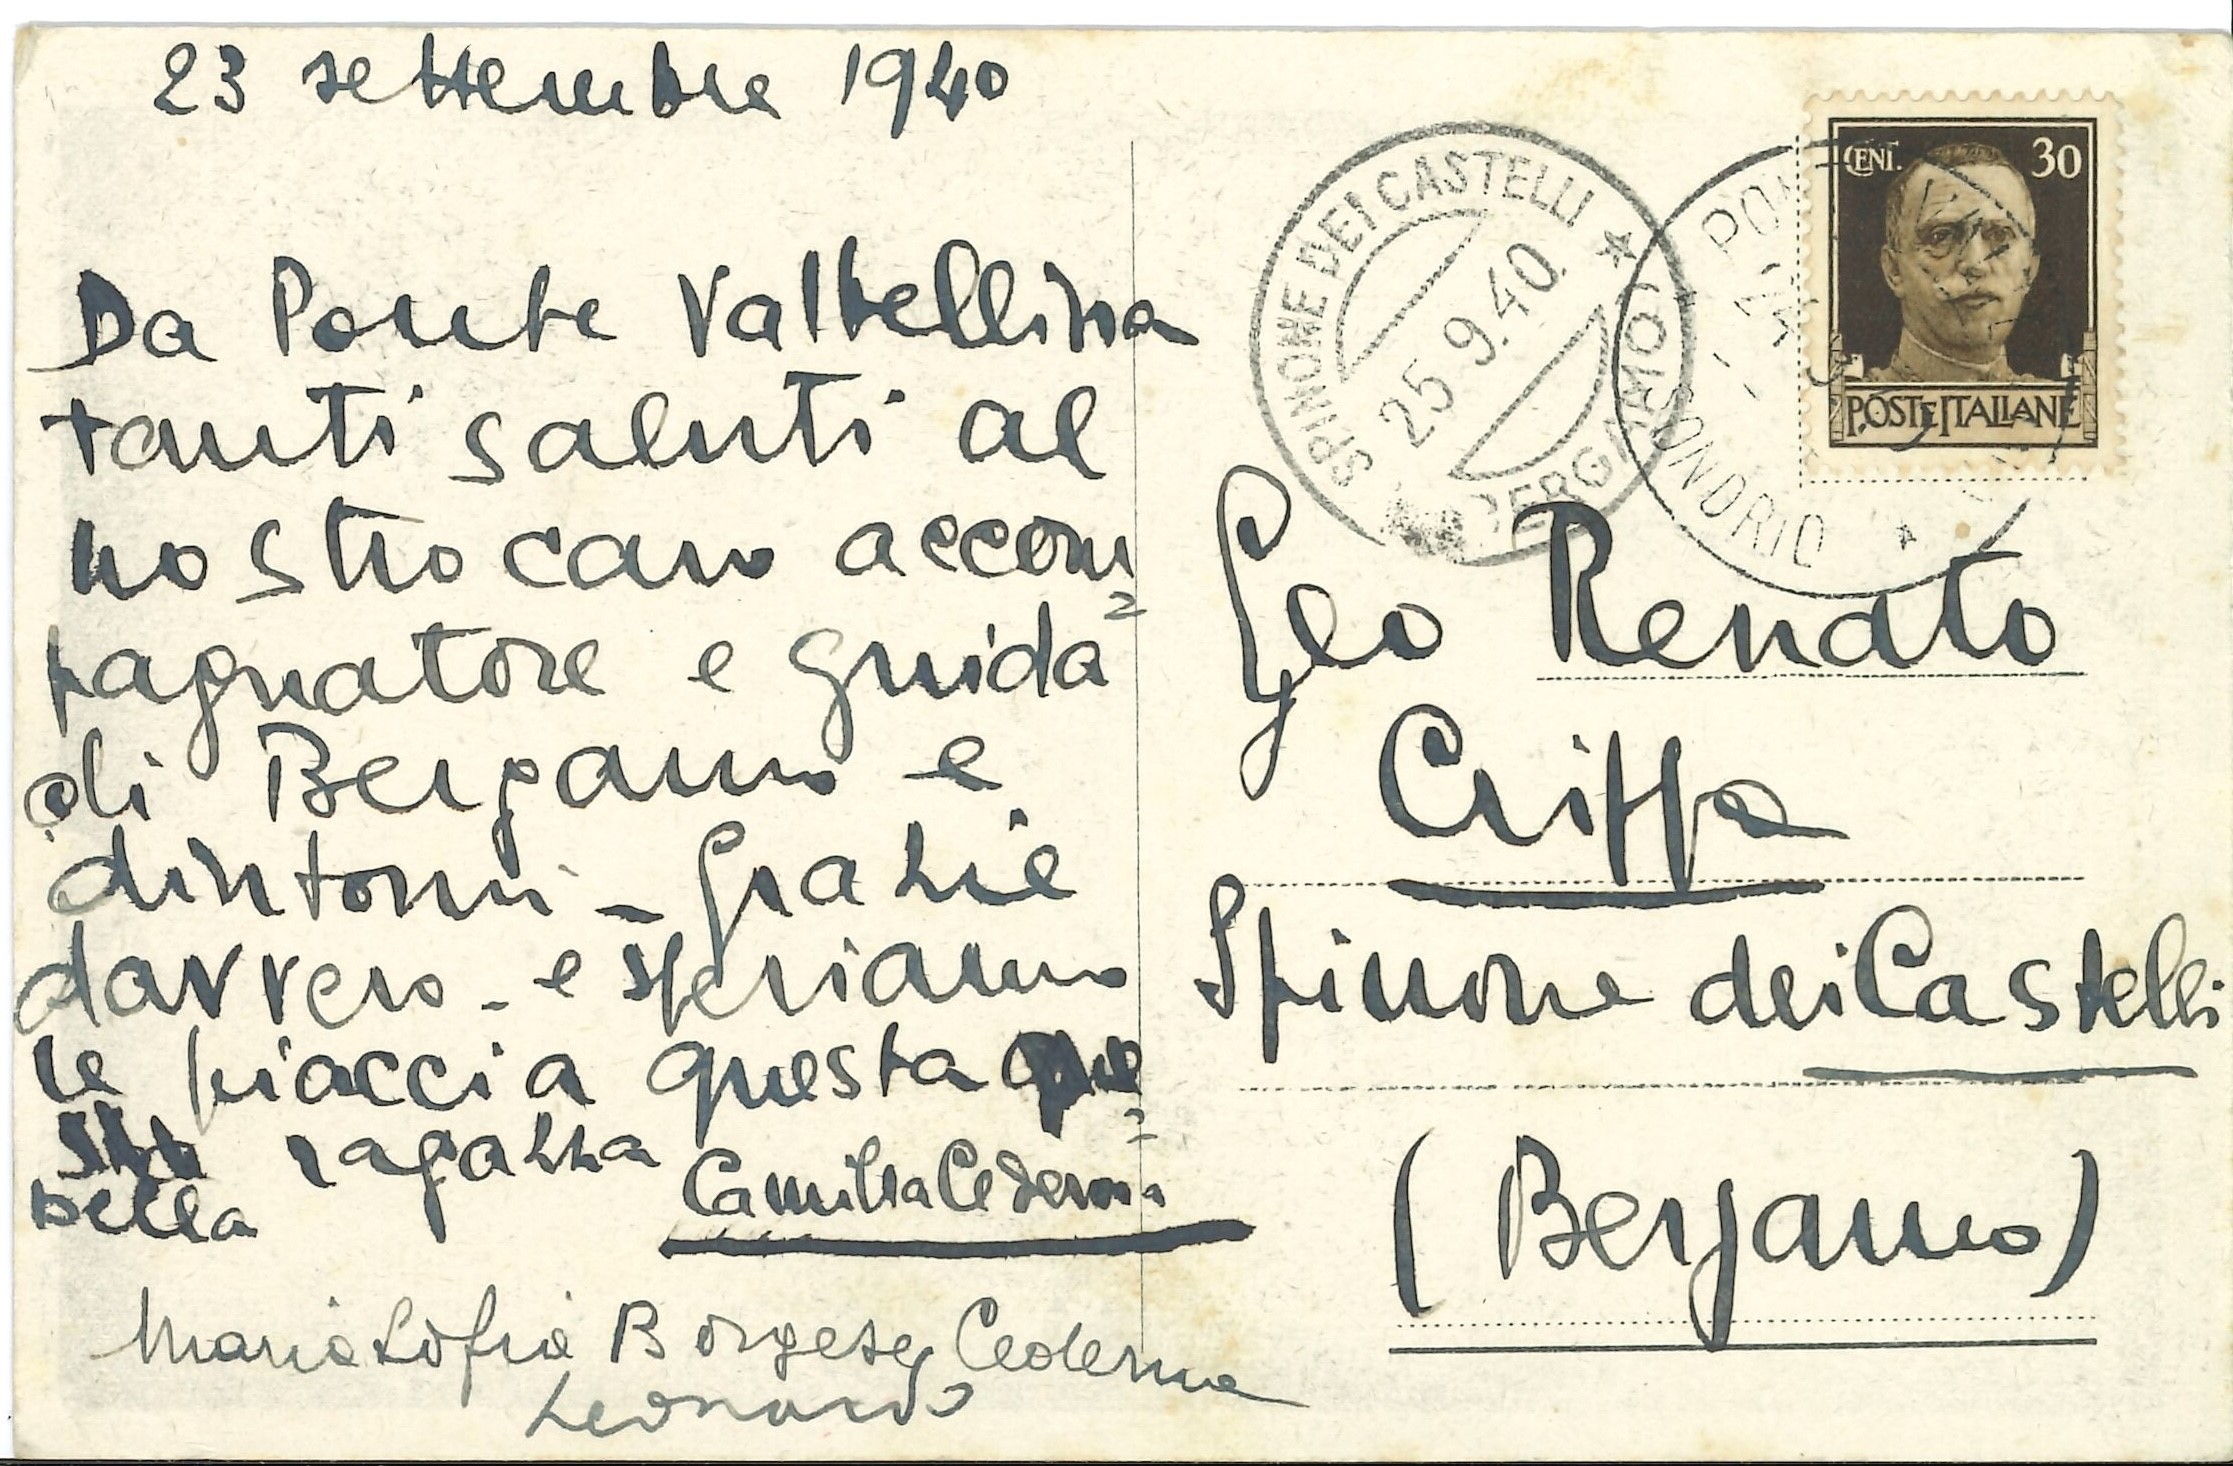 23 settembre 1940
Da Ponte Valtellina
tanti saluti al
nostro caro accom=
pagnatore e guida
di Bergamo e
dintorni - Grazie
davvero - e speriamo
le piaccia questa
bella ragazza
Camilla Cederna
Maria Sofia Borgese Cederna
Leonardo
SPINONE DEI CASTELLI
25.9.40.
BERGAMO
SONDRIO
CENT. 30
POSTE ITALIANE
Geo Renato
Crippa
Spinone dei Castelli
(Bergamo)